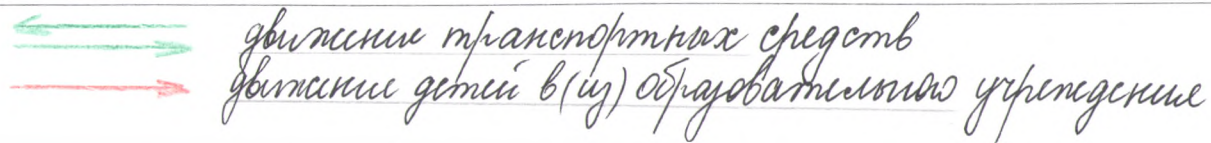 движение транспортных средств
движение детей в(из) образовательного учреждение